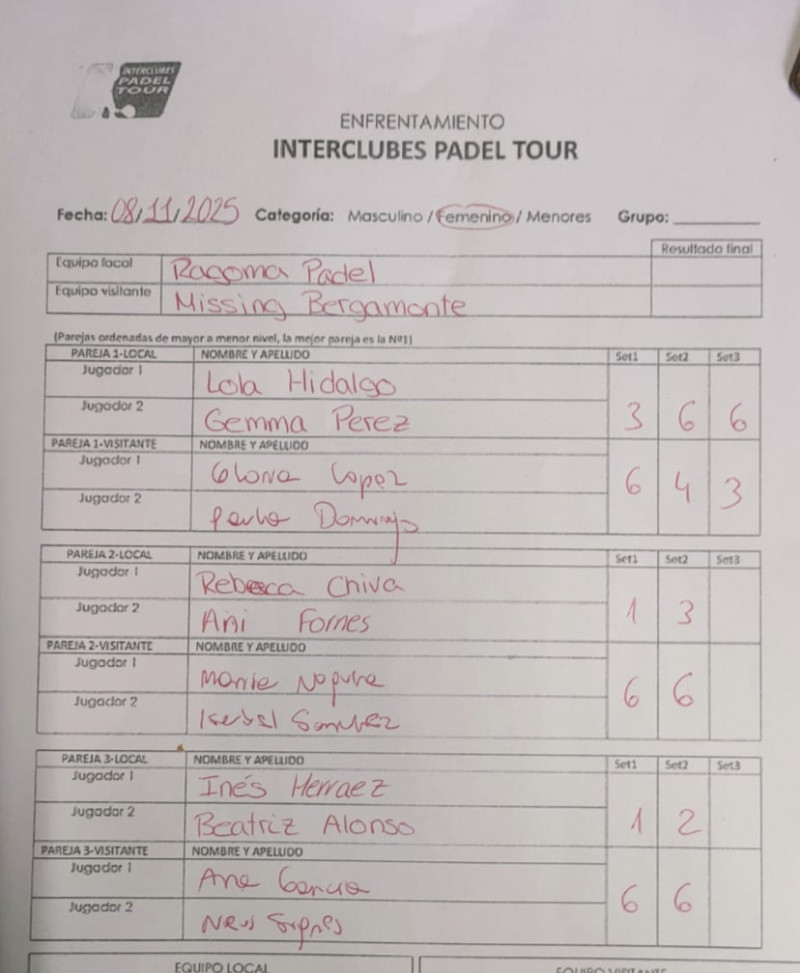 INTERCLUBES
PADEL
TOUR
ENFRENTAMIENTO
INTERCLUBES PADEL TOUR
Fecha: 08/11/2025 Categoría: Masculino / Femenino / Menores Grupo:
Resultado final
Equipo local Ragoma Padel
Equipo visitante Missing Bergamonte
(Parejas ordenadas de mayor a menor nivel, la mejor pareja es la Nº1)
PAREJA 1-LOCAL NOMBRE Y APELLIDO Set1 Set2 Set3
Jugador 1 Lola Hidalgo
Jugador 2 Gemma Perez 3 6 6
PAREJA 1-VISITANTE NOMBRE Y APELLIDO
Jugador 1 Gloria Lopez 6 4 3
Jugador 2 Domingo
PAREJA 2-LOCAL NOMBRE Y APELLIDO Set1 Set2 Set3
Jugador 1 Rebeca Chiva
Jugador 2 Ani Fornes 1 3
PAREJA 2-VISITANTE NOMBRE Y APELLIDO
Jugador 1 6 6
Jugador 2 Isabel Sanchez
PAREJA 3-LOCAL NOMBRE Y APELLIDO Set1 Set2 Set3
Jugador 1 Inés Herraez
Jugador 2 Beatriz Alonso 1 2
PAREJA 3-VISITANTE NOMBRE Y APELLIDO
Jugador 1 Ana Garcia 6 6
Jugador 2 Neus
EQUIPO LOCAL EQUIPO VISITANTE